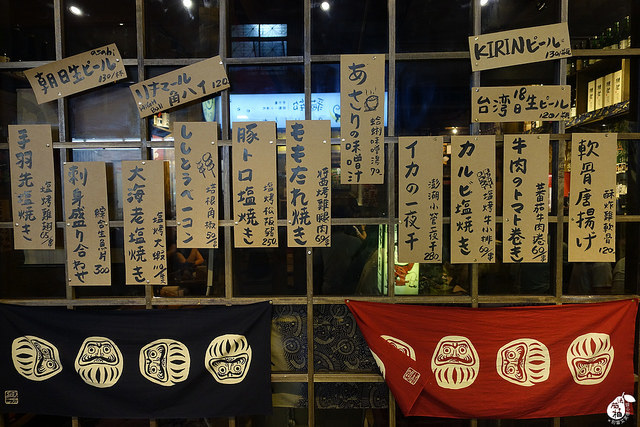 asahi
朝日生ビール
130/杯
ハイ 120
KIRINビール
130/瓶
台湾18日生ビール
120/瓶
手羽先塩焼き
塩烤雞翅 65/串
刺身盛り合わせ
綜合生魚片 300
大海老塩焼き
塩烤大蝦 110/串
ししとうベーコン
培根角椒 50/串
豚トロ塩焼き
塩烤松阪豬 250
ももたれ焼き
醬烤雞腿肉 60/串
あさりの味噌汁
蛤蜊味噌湯 70
イカの一夜干
澎湖小管一夜干 280
カルビ塩焼き
塩烤牛小排 60/串
牛肉のトマト巻き
蕃茄牛肉捲 60/串
軟骨唐揚げ
酥炸雞軟骨 120